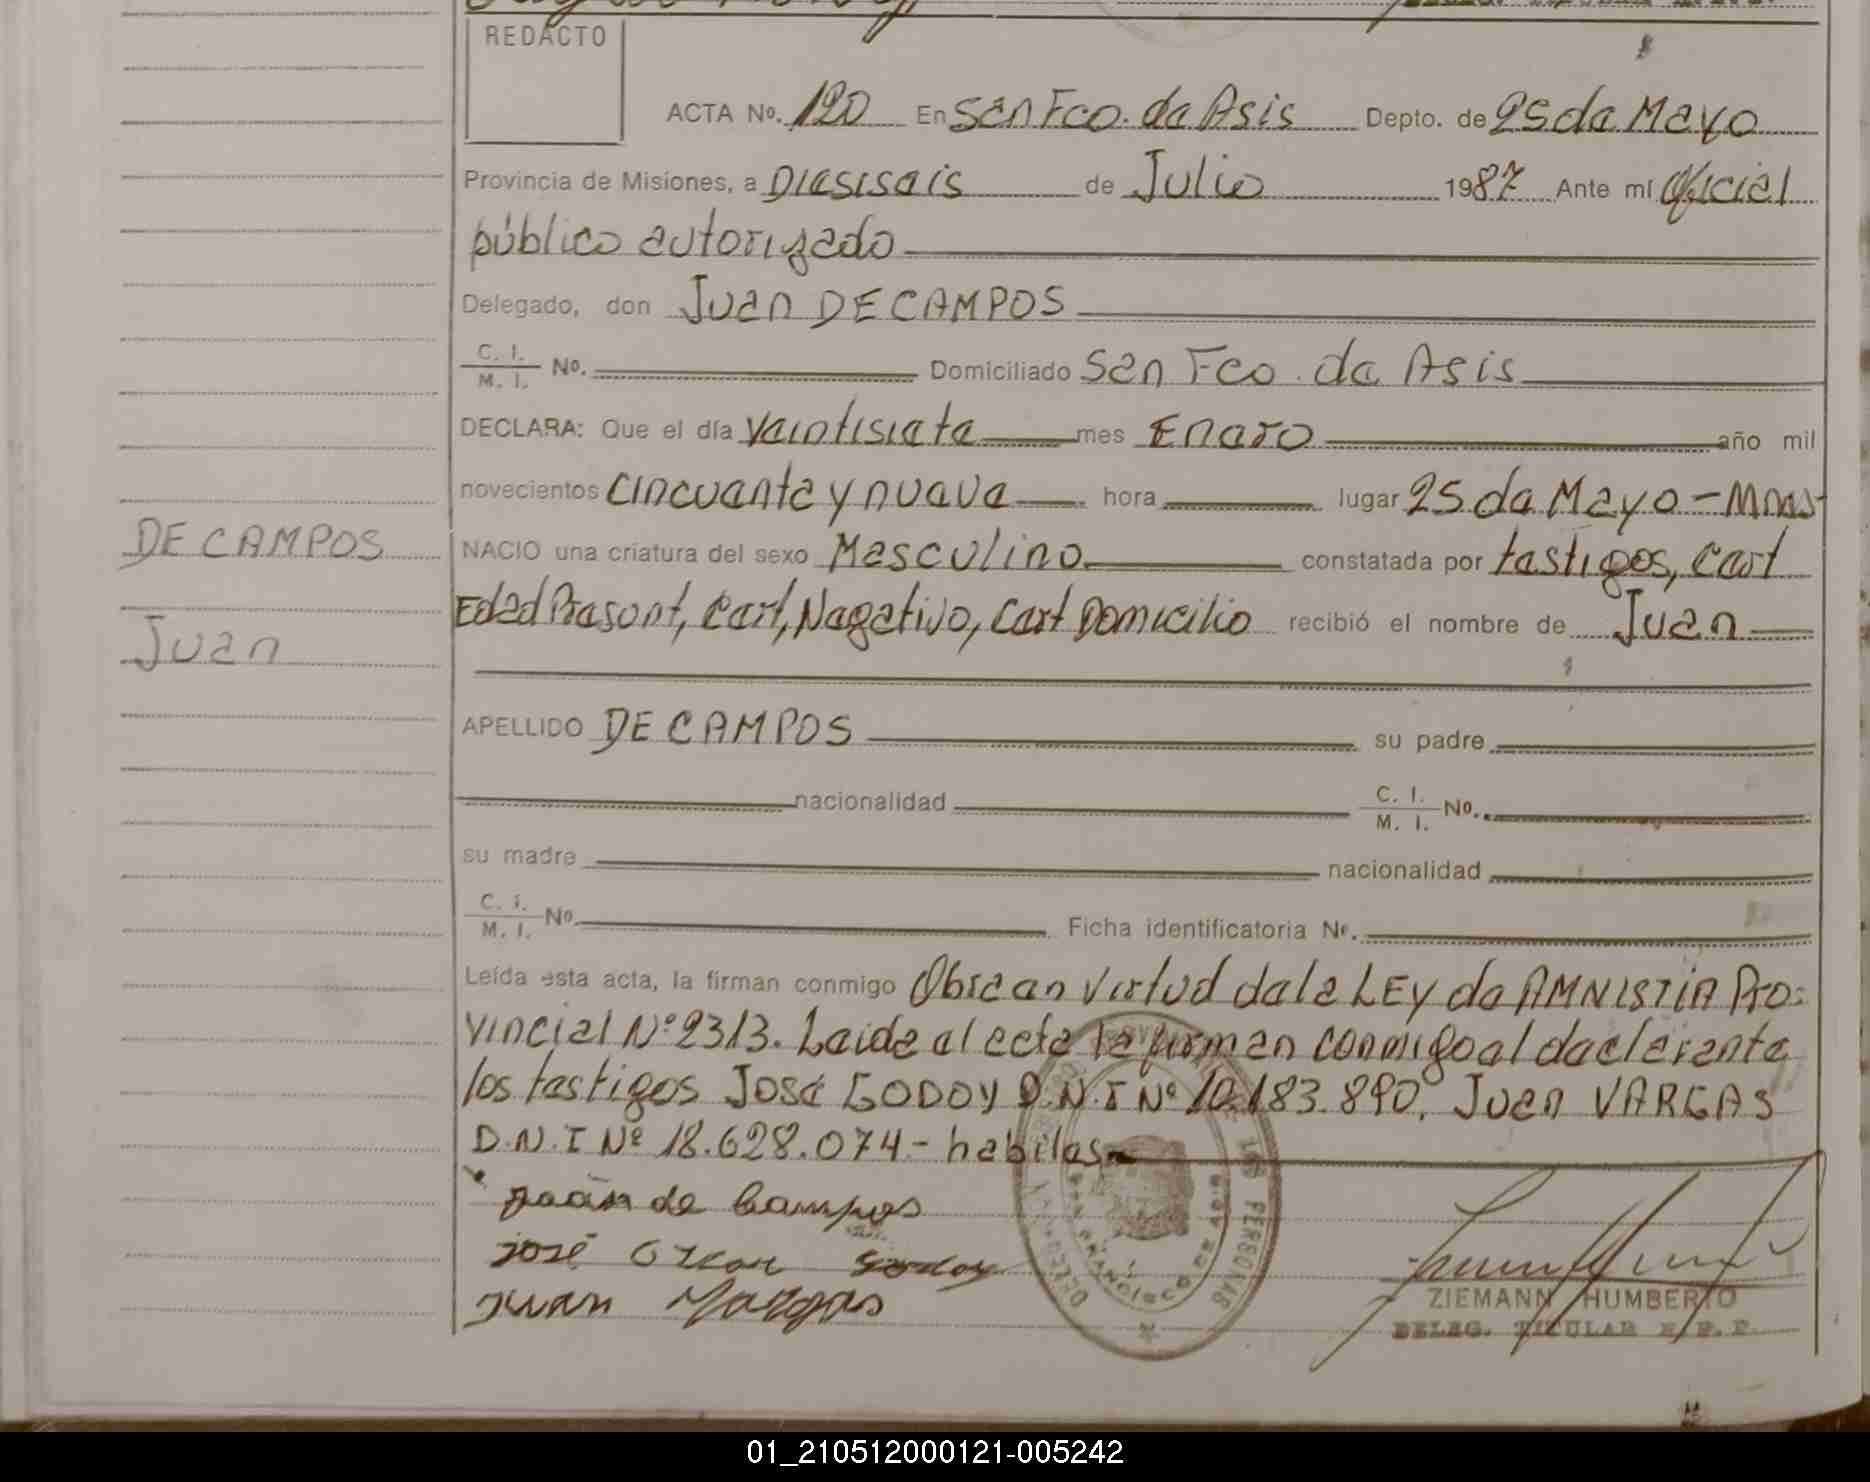 REDACTO
ACTA No. 120 En San Fco. de Asis Depto. de 25 de Mayo
Provincia de Misiones, a Diesiseis de Julio 1987 Ante mí Oficial
público autorizado
Delegado, don Juan DE CAMPOS
C. I. / M. I. No. Domiciliado San Fco. de Asis
DECLARA: Que el día Veintisiete mes Enero año mil
novecientos cincuenta y nueve hora lugar 25 de Mayo - Mnes
DE CAMPOS
NACIO una criatura del sexo Masculino constatada por testigos, Cert
Edad Presunt, Cert, Negativo, Cert Domicilio recibió el nombre de Juan
Juan
APELLIDO DE CAMPOS su padre
nacionalidad C. I. / M. I. No.
su madre nacionalidad
C. I. / M. I. No. Ficha identificatoria No.
Leída esta acta, la firman conmigo Obra en virtud de la LEY de AMNISTIA Pro-
vincial Nº 2313. Leida el acta la firman conmigo el declarante
los testigos José GODOY D.N.I Nº 10.183.890, Juan VARGAS
D.N.I Nº 18.628.074 - habiles
juan de Campos
josé Oscar Godoy
juan Vargas
ZIEMANN HUMBERTO
DELEG. TITULAR R. P. P.
LAS PERSONAS
SAN FRANCISCO DE ASIS
01_210512000121-005242